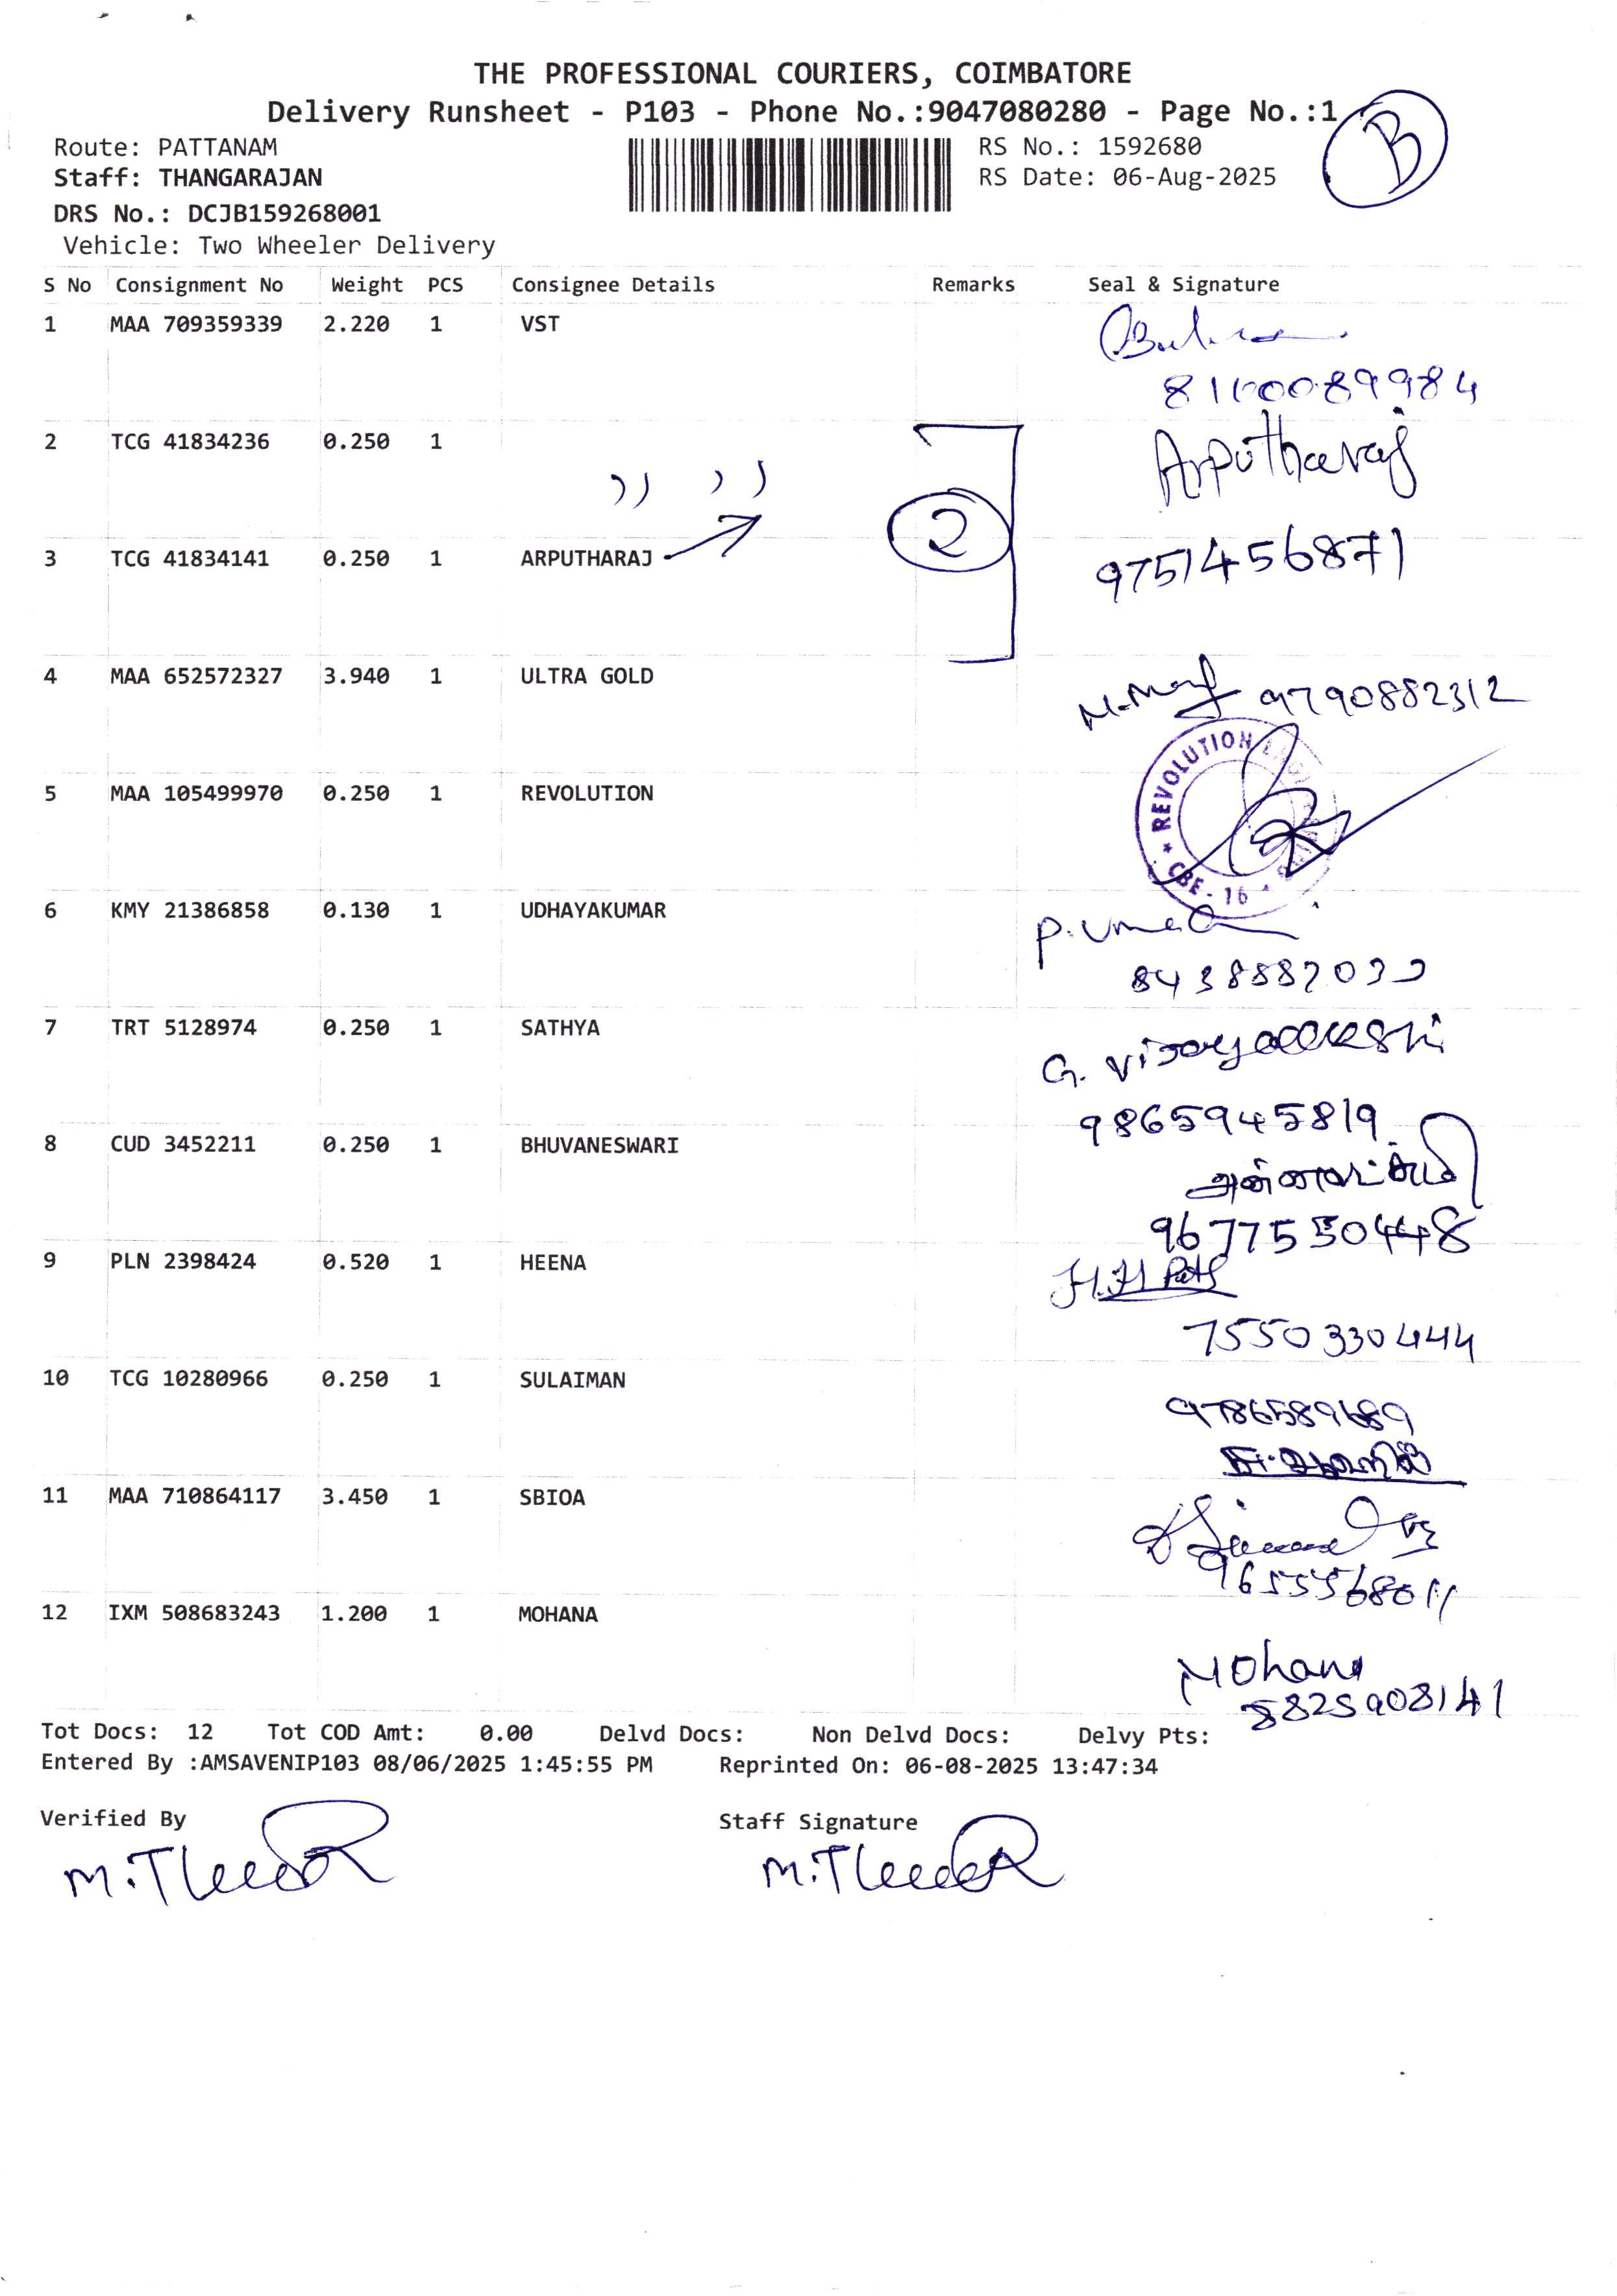 THE PROFESSIONAL COURIERS, COIMBATORE
Delivery Runsheet - P103 - Phone No.:9047080280 - Page No.:1
B
Route: PATTANAM
RS No.: 1592680
Staff: THANGARAJAN
RS Date: 06-Aug-2025
DRS No.: DCJB159268001
Vehicle: Two Wheeler Delivery
S No Consignment No Weight PCS Consignee Details Remarks Seal & Signature
1 MAA 709359339 2.220 1 VST
8100089984
2 TCG 41834236 0.250 1
Arputharaj
,, ,,
2
3 TCG 41834141 0.250 1 ARPUTHARAJ
9751456871
4 MAA 652572327 3.940 1 ULTRA GOLD
9790882312
5 MAA 105499970 0.250 1 REVOLUTION
* REVOLUTION
CBE - 16
6 KMY 21386858 0.130 1 UDHAYAKUMAR
7 TRT 5128974 0.250 1 SATHYA
9865945819
8 CUD 3452211 0.250 1 BHUVANESWARI
9677550448
9 PLN 2398424 0.520 1 HEENA
7550330444
10 TCG 10280966 0.250 1 SULAIMAN
9786589689
11 MAA 710864117 3.450 1 SBIOA
9655568011
12 IXM 508683243 1.200 1 MOHANA
Mohana
8825908141
Tot Docs: 12 Tot COD Amt: 0.00 Delvd Docs: Non Delvd Docs: Delvy Pts:
Entered By :AMSAVENIP103 08/06/2025 1:45:55 PM Reprinted On: 06-08-2025 13:47:34
Verified By Staff Signature